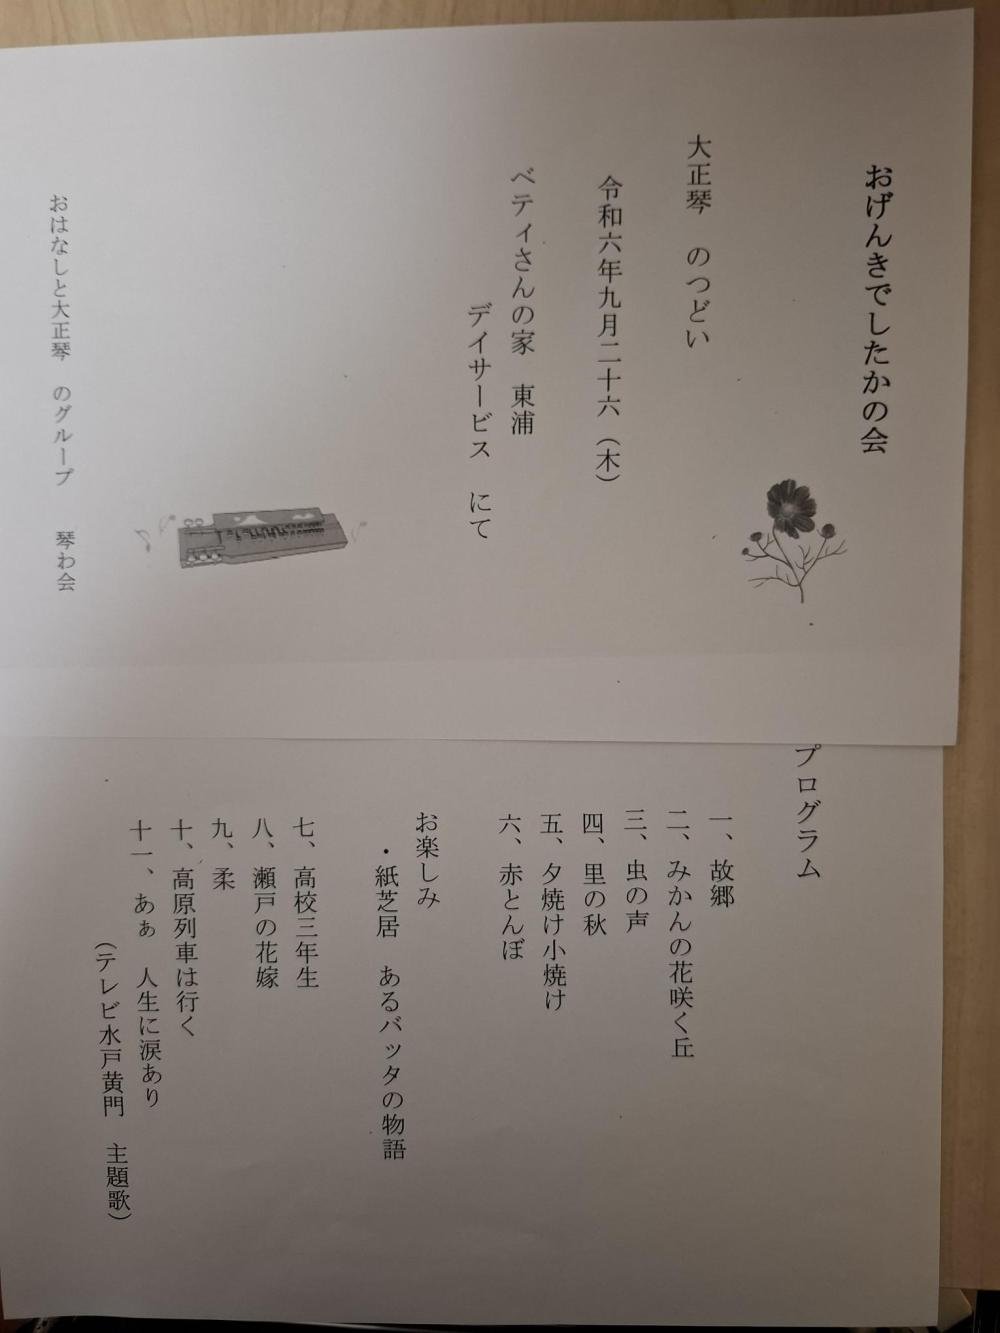 おげんきでしたかの会
大正琴 のつどい
令和六年九月二十六（木）
ベティさんの家 東浦
デイサービス にて
おはなしと大正琴 のグループ 琴わ会
プログラム
一、故郷
二、みかんの花咲く丘
三、虫の声
四、里の秋
五、夕焼け小焼け
六、赤とんぼ
お楽しみ
・紙芝居 あるバッタの物語
七、高校三年生
八、瀬戸の花嫁
九、柔
十、高原列車は行く
十一、あぁ 人生に涙あり
（テレビ水戸黄門 主題歌）